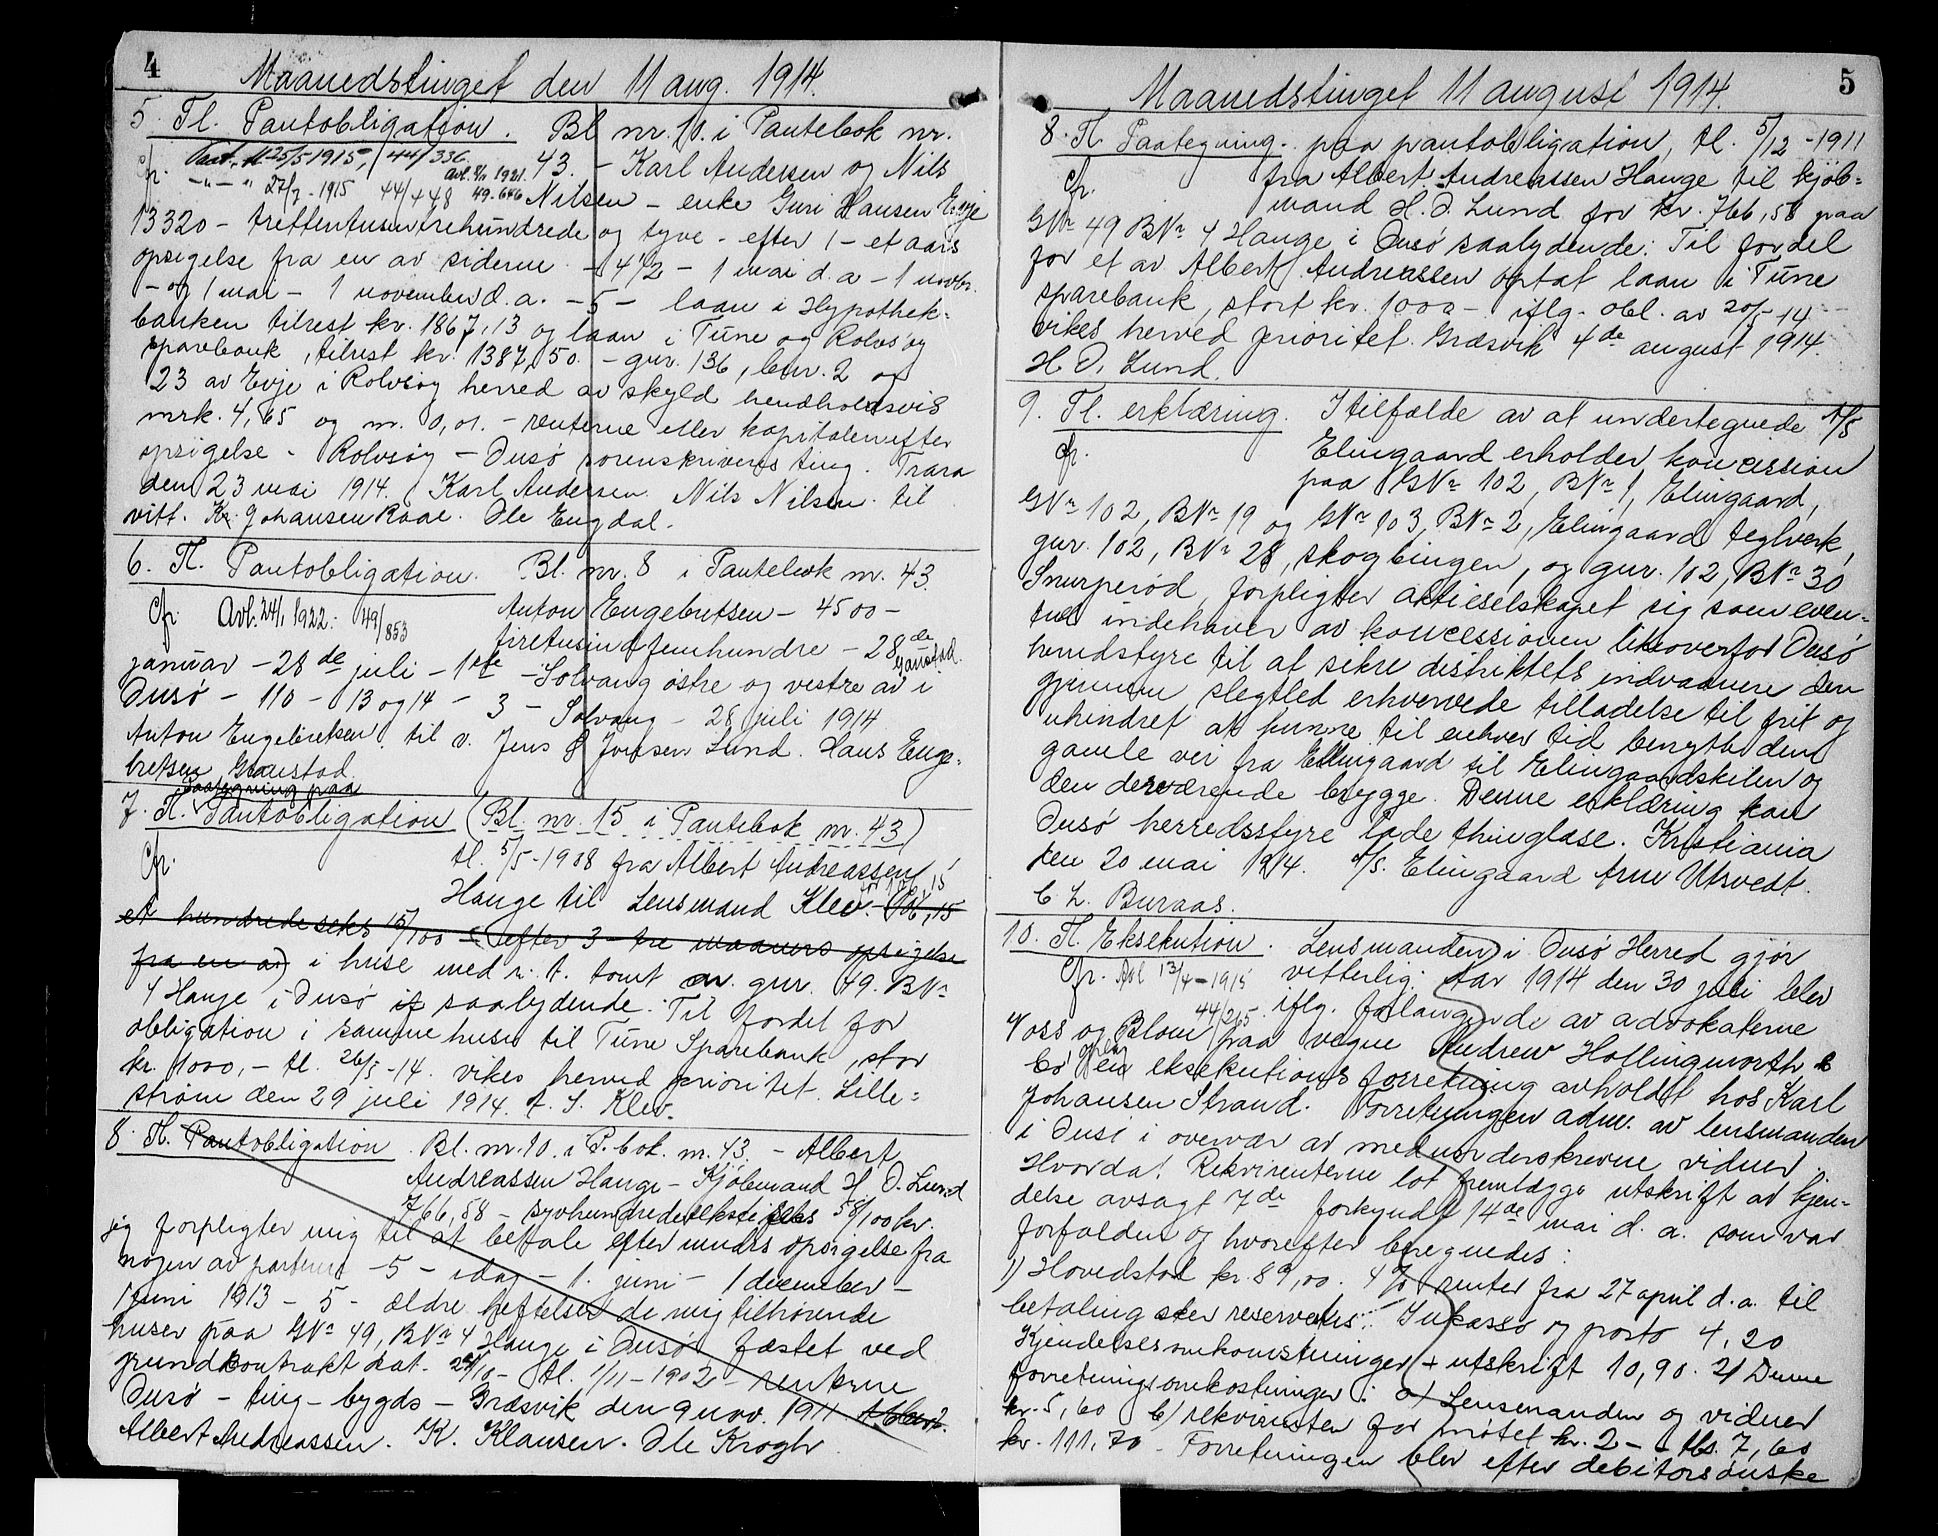 4
Maanedstinget den 11 aug. 1914.
5. Tl. Pantobligation. Bl nr. 10. i Pantebok nr.
43. – Karl Andersen og Nils
cfr. Pant. tl 25/5 1915, 44/336.
–"–"– 27/7 - 1915 44/448 49.646
Nilsen – enke Guri Hansen Evje
13320 – trettentusentrehundrede og tyve – efter 1 – et aars
opsigelse fra en av siderne – 4 1/2 – 1 mai d.a – 1 novbr.
– og 1 mai – 1 november d.a. – 5 – laan i Hypothek-
banken tilrest kr. 1867,13 og laan i Tune og Rolvsøy
sparebank, tilrest kr. 1387,50. – gnr. 136, bnr. 2 og
23 av Evje i Rolvsøy herred av skyld hendholdsvis
mrk. 4,65 og m. 0,01. – renterne eller kapitalen efter
opsigelse – Rolvsøy – Onsø sorenskriveris ting. Trara
den 23 mai 1914. Karl Andersen. Nils Nilsen. til
vitt. Kr. Johansen Raae. Ole Engdal.
6. Tl. Pantobligation. Bl. nr. 8 i Pantebok nr. 43.
Cfr. Avl. 24/1 1922: 49/853
Anton Engebretsen – 4500 –
firetusindfemhundre – 28de
januar – 28de juli – 1ste – Solvang østre og vestre av Gaustad i
Onsø – 110 – 13 og 14 – 3 – Solvang – 28 juli 1914
Anton Engebretsen. til v. Jens Jonsen Lund. Hans Enge-
bretsen Gaustad.
Paategning paa
7. Tl. Pantobligation (Bl. nr. 15 i Pantebok nr. 43)
Cfr.
tl. 5/5 - 1908 fra Albert Andreassen
Hauge til Lensmand Klev. – 106,15
et hundrede seks 15/100 – efter 3 – tre maaners opsigelse
fra en av) i huse med r. t. tomt av. gnr. 49. BNr
4 Hauge i Onsø saalydende: Til fordel for
obligation i samme huse til Tune Sparebank, stor
kr. 1000,– tl. 26/5 - 14. vikes herved prioritet. Lille-
strøm den 29 juli 1914. t. S. Klev.
8. Tl. Pantobligation. Bl. nr. 10. i P. bok. nr. 43. – Albert
Andreassen Hauge – Kjøbmand H. O. Lund
766,58 – syvhundredesekstiseks 58/100 kr.
jeg forpligter mig til at betale efter mnds opsigelse fra
nogen av parterne – 5 – idag – 1. juni – 1 december –
1 juni 1913 – 5 – ældre heftelser de mig tilhørende
huser paa GNr 49, BNr 4 Hauge i Onsø fæstet ved
grundkontrakt dat. 24/10 – tl. 1/11 – 1902 – renterne
Onsø – ting – bygds – Græsvik den 9 nov. 1911
Albert Andreassen. K. Klausen. Ole Krogh
5
Maanedstinget 11 august 1914.
8. Tl. Paategning. paa pantobligation, tl. 5/12 - 1911
Cfr.
fra Albert Andreassen Hauge til kjøb-
mand H. O. Lund for kr. 766,58 paa
GNr 49 BNr 4 Hauge i Onsø saalydende: Til fordel
for et av Albert Andreassen optat laan i Tune
sparebank, stort kr. 1000 – iflg. obl. av 20/5 - 14
vikes herved prioritet. Græsvik 4de august 1914.
H. O. Lund.
9. Tl. erklæring. I tilfælde av at undertegnede A/S
cfr.
Elingaard erholder koncession
paa GNr 102, BNr 1, Elingaard,
GNr 102, BNr 19 og GNr 103, BNr 2, Elingaard teglverk,
gnr. 102, BNr 28, skogbingen, og gnr. 102, BNr 30
Snurperød, forpligter aktieselskapet sig som even-
tuel indehaver av koncessionen likeoverfor Onsø
herredstyre til at sikre distriktets indvaanere den
gjennem slegtled erhvervede tilladelse til frit og
uhindret at kunne til enhver tid benytte den
gamle vei fra Elingaard til Elingaardskilen og
den derværende brygge. Denne erklæring kan
Onsø herredsstyre lade thinglæse. Kristiania
den 20 mai 1914. A/S. Elingaard Arne Utsvedt.
C L. Buraas.
10. Tl. Eksekution. Lensmanden i Onsø Herred gjør
Cfr. Avl 13/4 - 1915 44/265
vitterlig: Aar 1914 den 30 juli blev
iflg. forlangende av advokaterne
Voss og Blom paa vegne Andrew Hollingworth &
Co en eksekutions forretning avholdt hos Karl
Johansen Strand. Forretningen adm. av lensmanden
i Onsø i overvær av medunderskrevne vidner.
Hvorda! Rekvirenterne lot fremlægge utskrift av kjen-
delse avsagt 7de forkyndt 14de mai d. a. som var
forfalden og hvorefter beregnedes:
1) Hovedstol kr. 89,00. 4 % renter fra 27 april d. a. til
betaling sker reservertes. Inkasso og porto 4,20
Kjendelsesomkostninger + utskrift 10,90. 2) Denne
forretningsomkostninger: a) Lensmanden og vidner
kr. 5,60 b) rekvirenten for møtet kr. 2 – tls. 7,60
kr. 111,70 – Forretningen blev efter debitors ønske